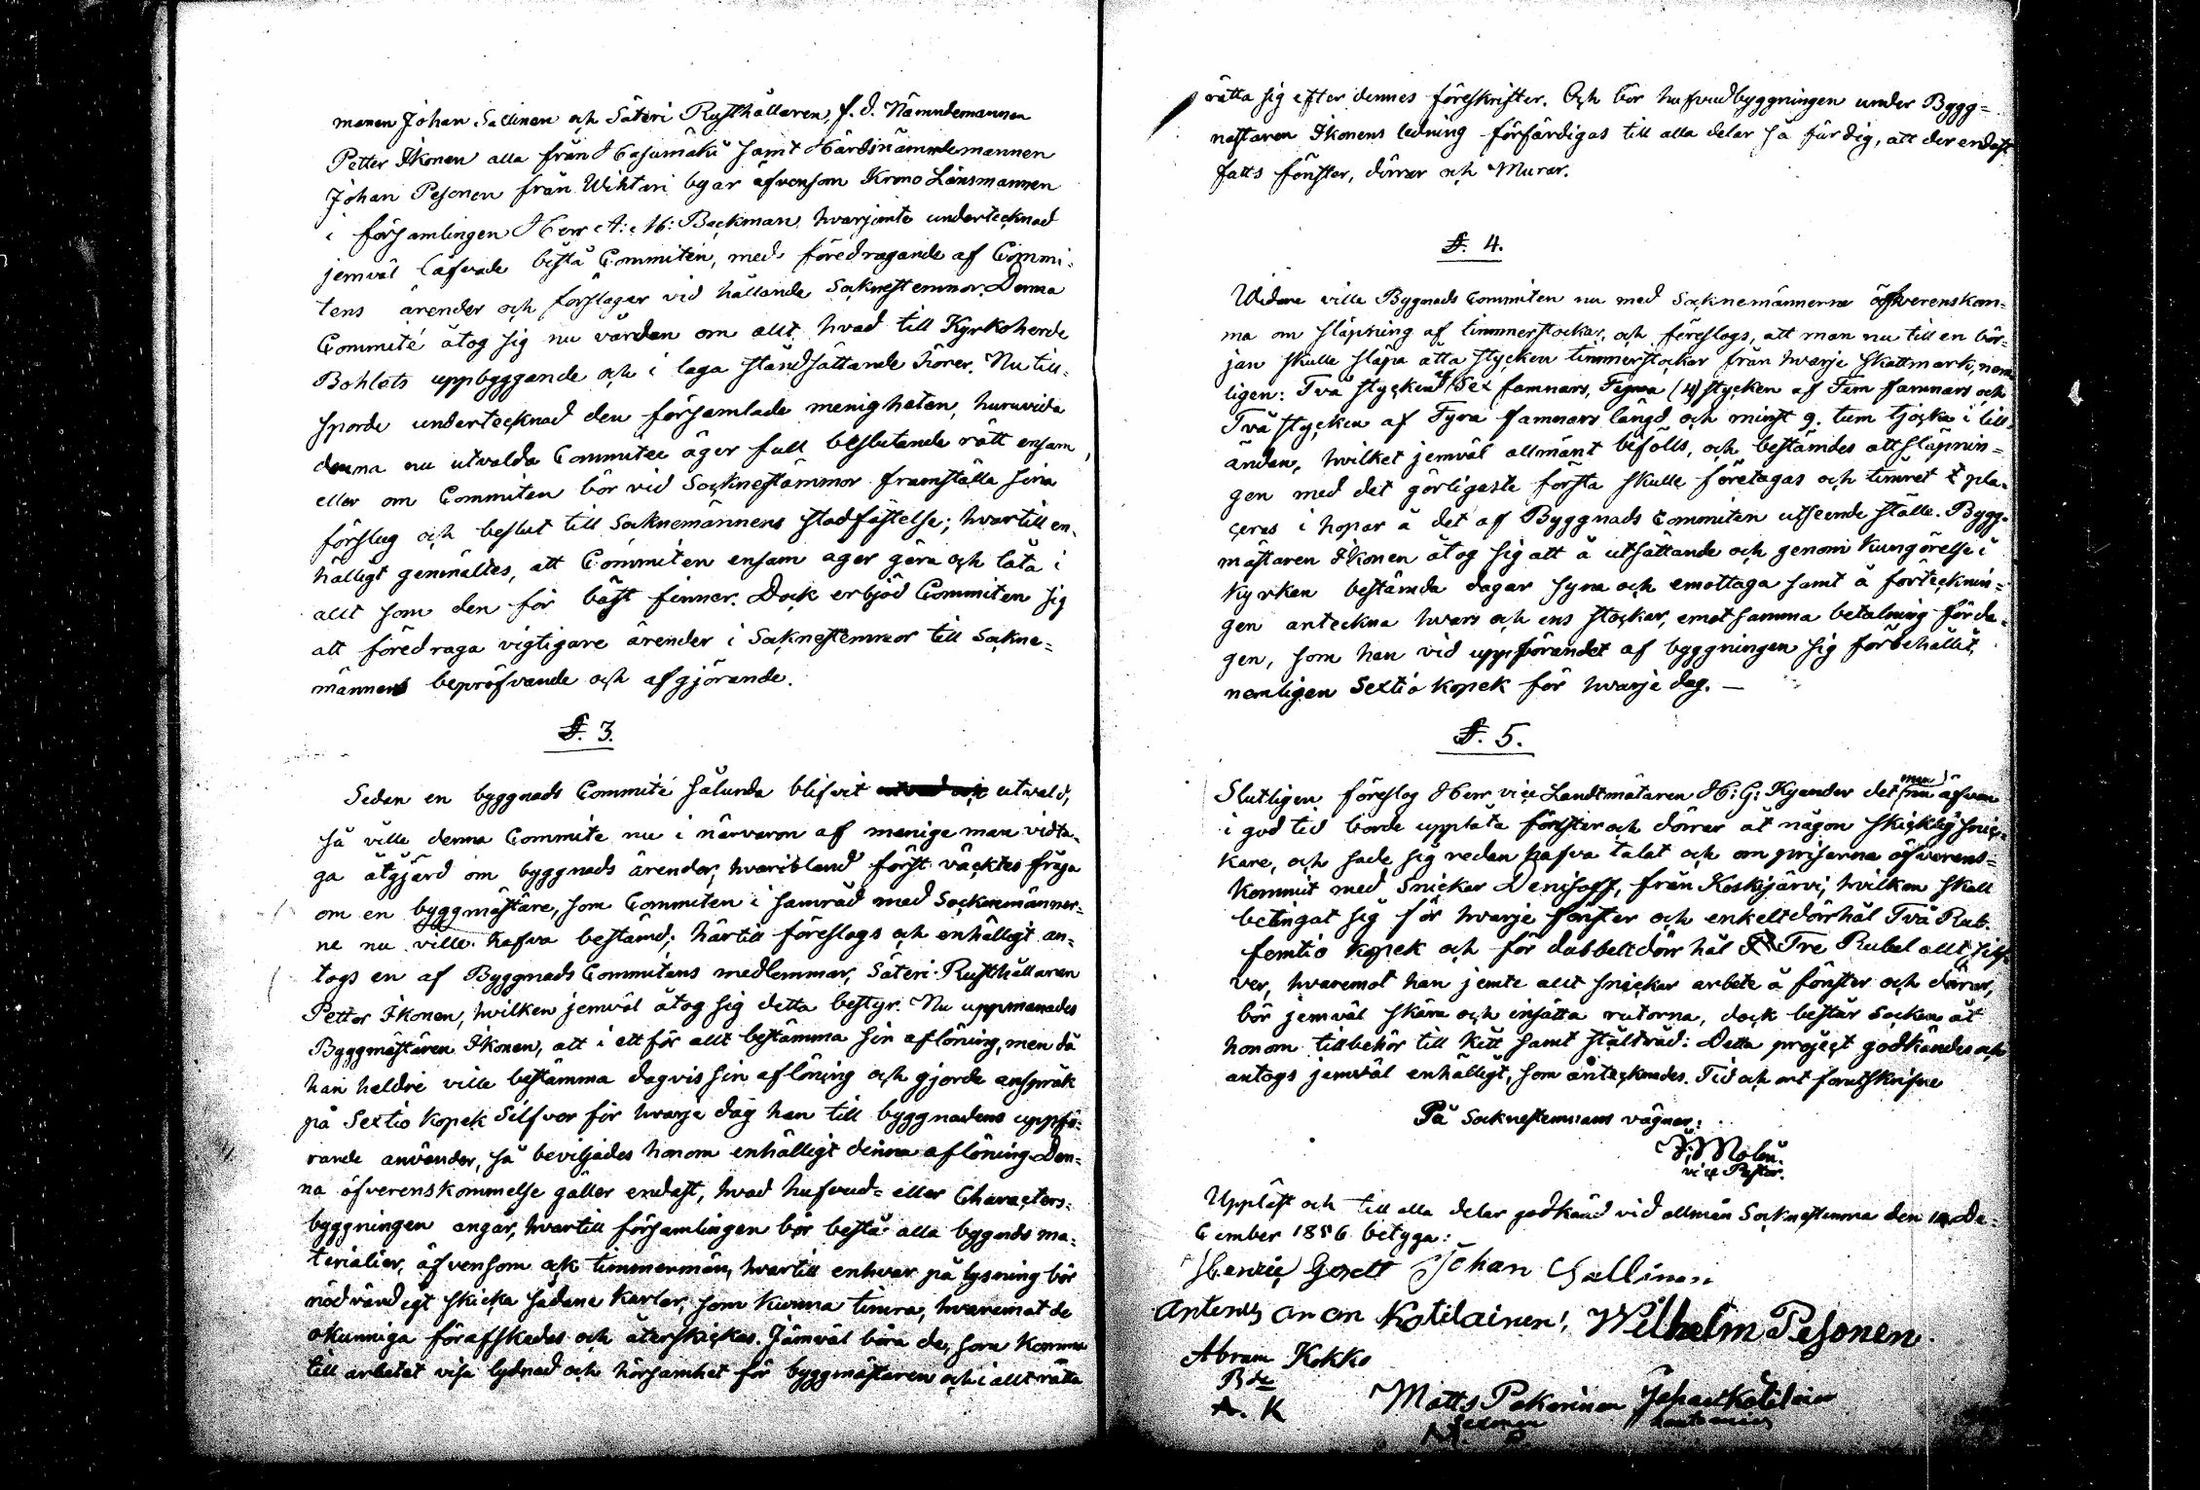 manen Johan Sallinen och Säteri Rusthållaren, f. d. Nämndemannen
Petter Ikonen alla från Hasumäki samt Häradsnämndemannen
Johan Pesonen från Wihtari byar äfvensom Krono Länsmannen
i församlingen Herr A: M: Backman, hvarjemte undertecknad
jemväl lofvade bistå Commitén, med föredragande af Commi-
tens ärender och förslager vid hållande Socknestemmor. Denna
Commité åtog sig nu vården om allt, hvad till Kyrkoherde
Bohlets uppbyggande och i laga ståndsättande hörer. Nu till-
sporde undertecknad den församlade menigheten, huruvida
denna nu utvalda Commitée äger full beslutande rätt ensam,
eller om Commiten bör vid Socknestämmor framställa sina
förslag och beslut till Socknemännens stadfästelse; hvartill en-
hälligt genmältes, att Commiten ensam äger göra och låta i
allt som den för bäst finner. Dock erbjöd Commiten sig
att föredraga vigtigare ärender i Socknestemmor till Sockne-
männens bepröfvande och afgjörande.
§. 3.
Sedan en byggnads Commité sålunda blifvit utvald,
så ville denna Commite nu i närvaron af menige man vidta-
ga åtgjärd om byggnads ärender, hvaribland först väcktes fråga
om en byggmästare, som Commiten i samråd med Socknemänner-
ne nu ville hafva bestämd; härtill föreslogs och enhälligt an-
togs en af Byggnads Commitens medlemmar, Säteri Rusthållaren
Petter Ikonen, hvilken jemväl åtog sig detta bestyr. Nu uppmanades
Byggmästaren Ikonen, att i ett för allt bestämma sin aflöning, men då
han heldre ville bestämma dagvis sin aflöning och gjorde anspråk
på Sextio Kopek Silfver för hvarje dag han till byggnadens uppfö-
rande använder, så beviljades honom enhälligt denna aflöning. Den-
na öfverenskommelse gäller endast, hvad hufvud- eller Characters-
byggningen angår, hvartill församlingen bör bestå alla byggnds ma-
terialier, äfvensom ock timmermän, hvartill enhvar på lysning bör
nödvändigt skicka sådana karlar, som kunna timra, hvaremot de
okunniga förafskedas och återskickas. Jämväl böra de, som komma
till arbetet visa lydnad och hörsamhet för byggmästaren och i allt rätta
rätta sig efter dennes föreskrifter. Och bör hufvudbyggningen under Bygg-
mästaren Ikonens ledning förfärdigas till alla delar så färdig, att der endast
fatts fönster, dörrar och Murar.
§. 4.
Widare ville Byggnads Commiten nu med Socknemännerne öfverenskom-
ma om släpning af timmerstockar, och föreslogs, att man nu till en bör-
jan skulle släpa åtta stycken timmerstockar från hvarje skattmark, nem
ligen: Två stycken af Sex famnars, Fyra (4) stycken af Fem famnars och
Två stycken af Fyra famnars längd och minst 9. tum tjocka i lill-
ändan, hvilket jemväl allmänt bifölls, och bestämdes att släpnin-
gen med det görligaste första skulle företagas och timret pla-
ceras i hopar å det af Byggnads Commiten utseende ställe. Bygg-
mästaren Ikonen åtog sig att å utsättande och genom kungörelse i
Kyrkan bestämda dagar syna och emottaga samt å förtecknin-
gen anteckna hvars och ens stockar, emot samma betalning för da-
gen, som han vid uppförandet af byggningen sig förbehållit,
nemligen Sextio kopek för hvarje dag. —
§. 5.
Slutligen föreslog Herr vice Landtmätaren H: G: Kyander det man äfven
i god tid borde upplåta fönster och dörrar åt någon skicklig snic-
kare, och sade sig redan hafva talat och om priserna öfverens-
kommit med Snickar Denisoff, från Koskijärvi, hvilken skall
betingat sig för hvarje fönster och enkelt dörrhål Två Rub.
femtio kopek och för dubbelt dörr hål Tre Rubel allt silf-
ver, hvaremot han jemte allt snickar arbete å fönster och dörrar,
bör jemväl skära och insätta rutorna, dock består Socken åt
honom tillbehör till Kitt samt ståltråd: Detta project godkändes och
antogs jemväl enhälligt, som antecknades. Tid och ort förutskrifne
På Socknestemmans vägnar:
Molin.
vice Pastor.
Uppläst och till alla delar godkänd vid allmän Socknestemma den De-
cember 1856 betyga:
Johan Sallinen
Kotilainen, Wilhelm Pesonen.
Abram Kokko
A. K
Matts Pakarinen Johan Kotilain